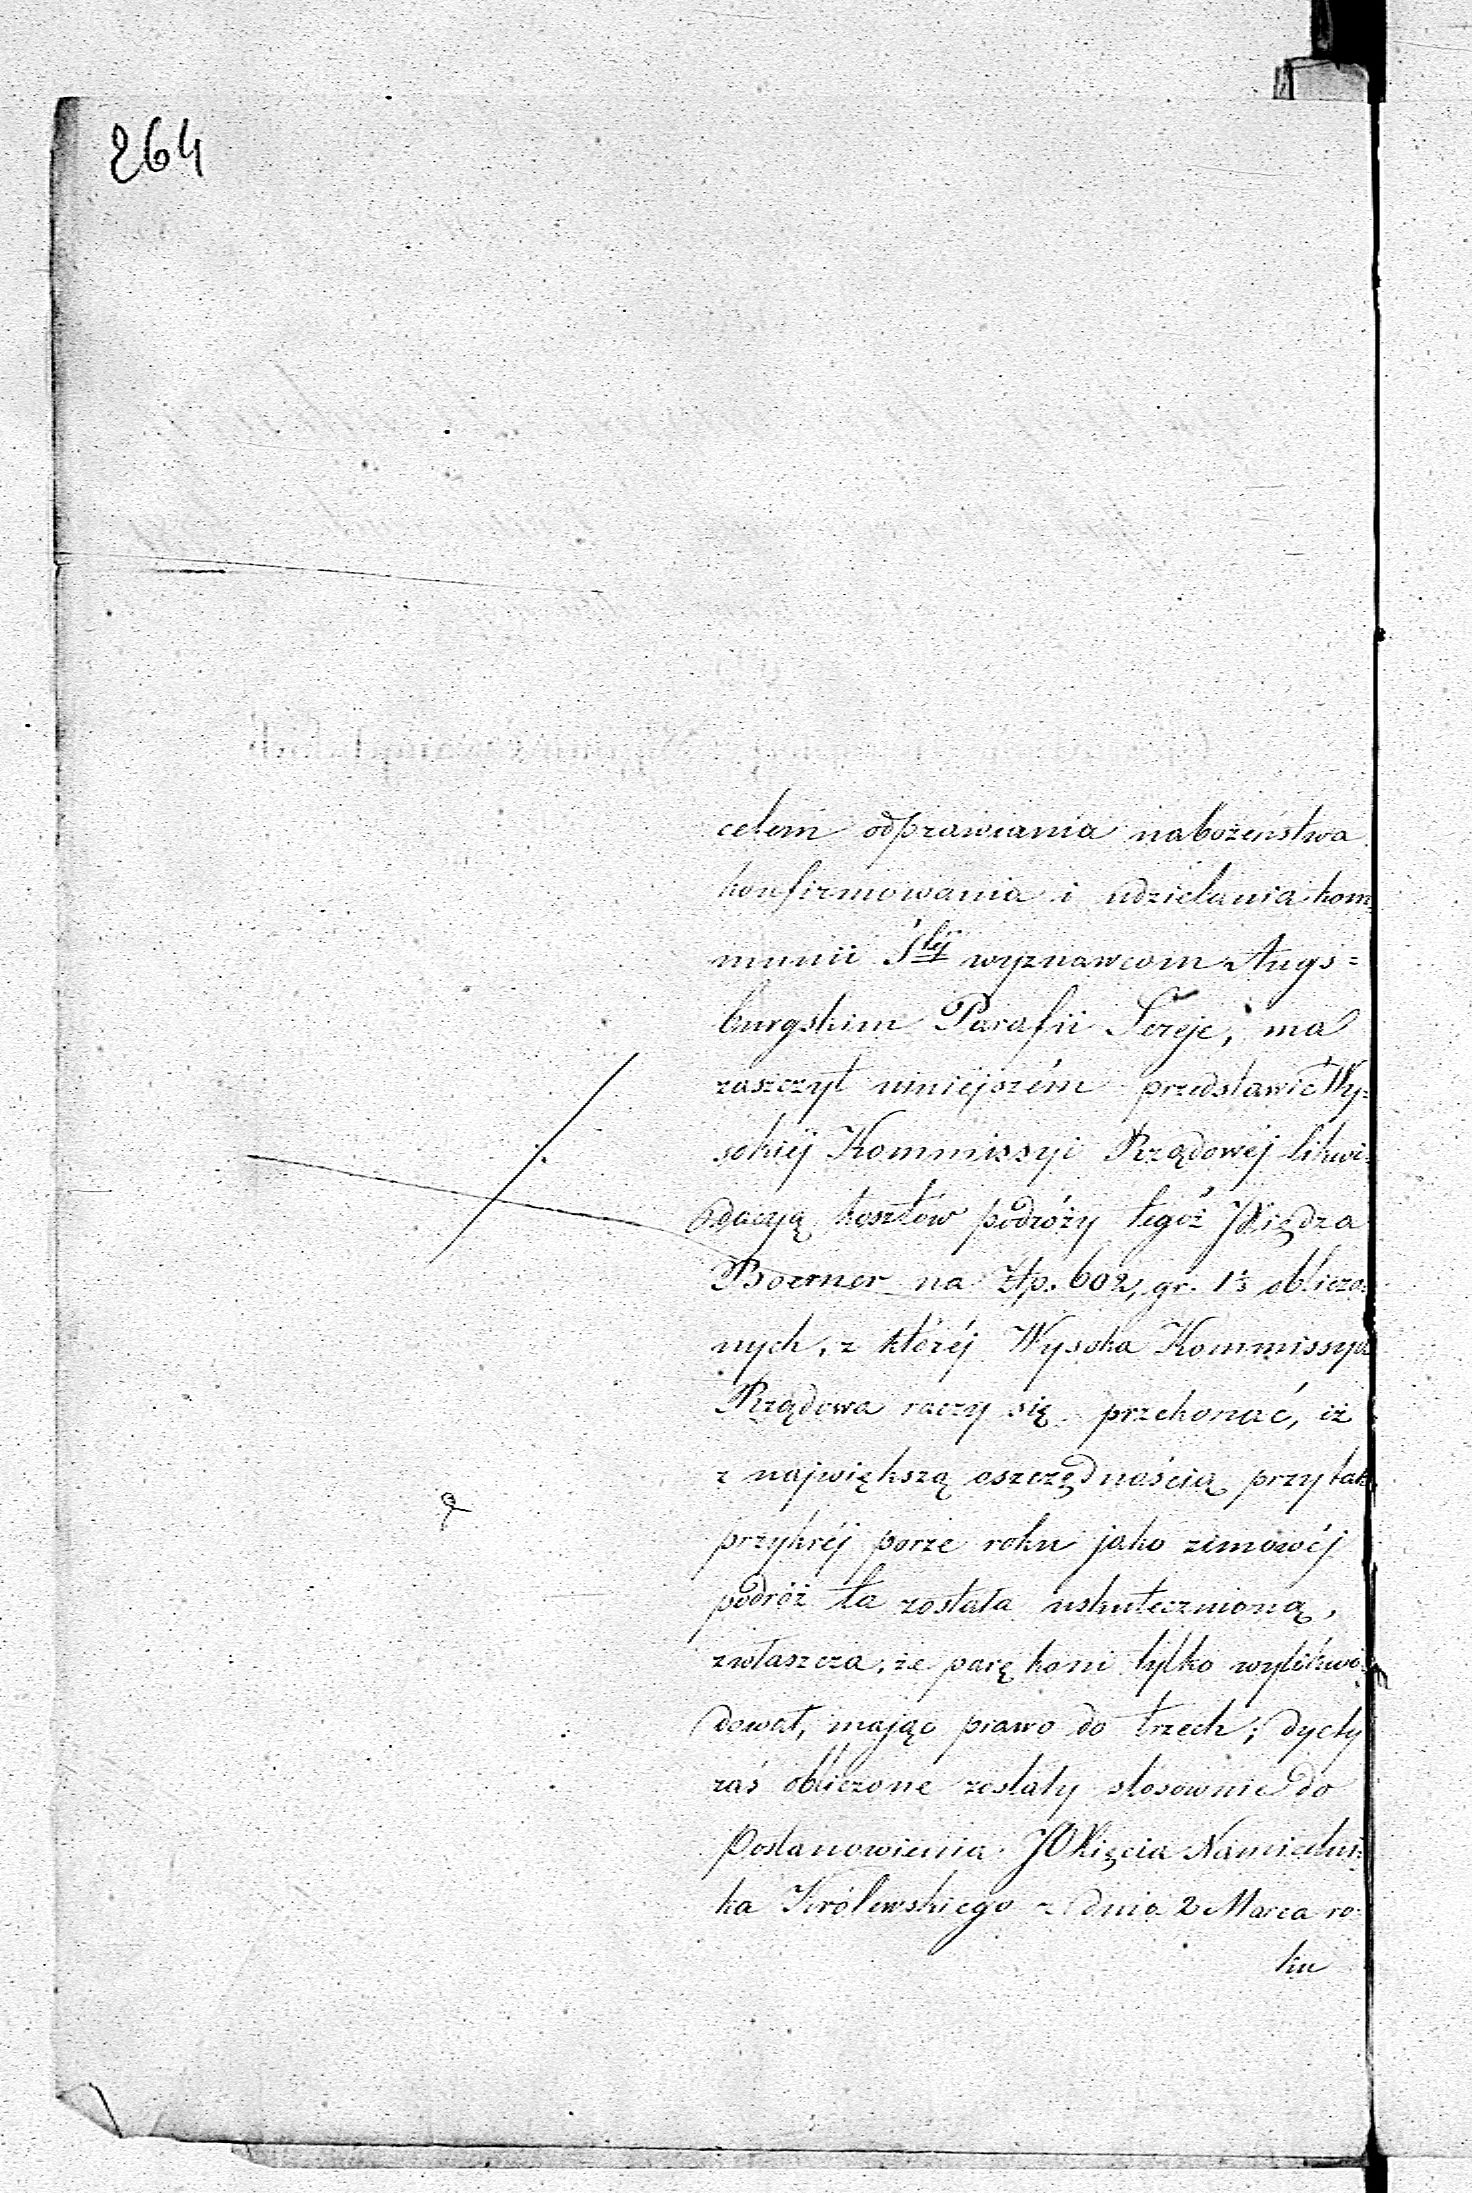 264
celem odprawiania nabożeństwa
konfirmowania i udzielania kom=
munii Śtéj wyznawcom Augs=
burgskim Parafii Sereje, ma
zaszczyt niniejszém przedstawić Wy=
sokiéj Kommissyi Rządowéj likwi=
dacyą kosztów podróży tegoż JXiędza
Boerner na złp. 602, gr. 13 obliczo=
nych, z któréj Wysoka Kommissya
Rządowa raczy się przekonać, iż
z największą oszczędnością przy tak
przykréj porze roku jako zimowéj
podróż ta została uskutecznioną,
zwłaszcza, że parę koni tylko wylikwi=
dował, mając prawo do trzech; dyety
zaś obliczone zostały stosownie do
Postanowienia JOXięcia Namiestni=
ka Królewskiego z dnia 2 Marca ro=
ku